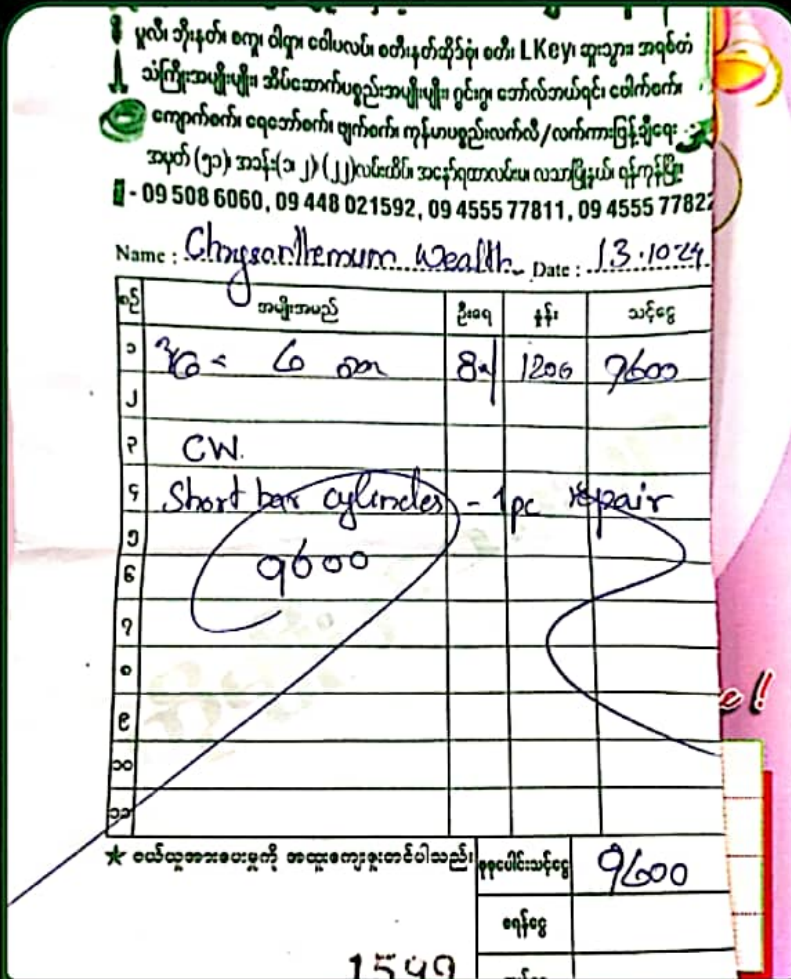 မူလီ၊ ဘိုးနတ်၊ စကူ၊ ဝါရှာ၊ ဝေါပလပ်၊ စတီးနတ်ဆိုဒ်စုံ၊ စတီး LKey၊ ဆူးသွား၊ အရစ်တံ
သံကြိုးအမျိုးမျိုး၊ အိပ်ဆောက်ပစ္စည်းအမျိုးမျိုး၊ ဂွင်းဂွ၊ ဘော်လ်ဘယ်ရင်၊ ပေါက်စက်၊
ကျောက်စက်၊ ရေဘော်စက်၊ ဖျက်စက်၊ ကုန်မာပစ္စည်းလက်လီ/လက်ကားဖြန့်ချိရေး
အမှတ် (၅၁)၊ အခန်း(၁၊၂) (၂၂)လမ်းထိပ်၊ အနော်ရထာလမ်းမ၊ လသာမြို့နယ်၊ ရန်ကုန်မြို့၊
- 09 508 6060, 09 448 021592, 09 4555 77811, 09 4555 77822
Name : Chrysanthemum Wealth Date : 13.10.24
စဉ် အမျိုးအမည် ဦးရေ နှုန်း သင့်ငွေ
၁ 8 1200 9600
၂
၃ CW.
၄ Short bar cylinder - 1pc repair
၅
၆ 9600
၇
၈
၉
၁၀
၁၁
★ ဝယ်ယူအားပေးမှုကို အထူးကျေးဇူးတင်ပါသည်။ စုစုပေါင်းသင့်ငွေ 9600
စရန်ငွေ
1549